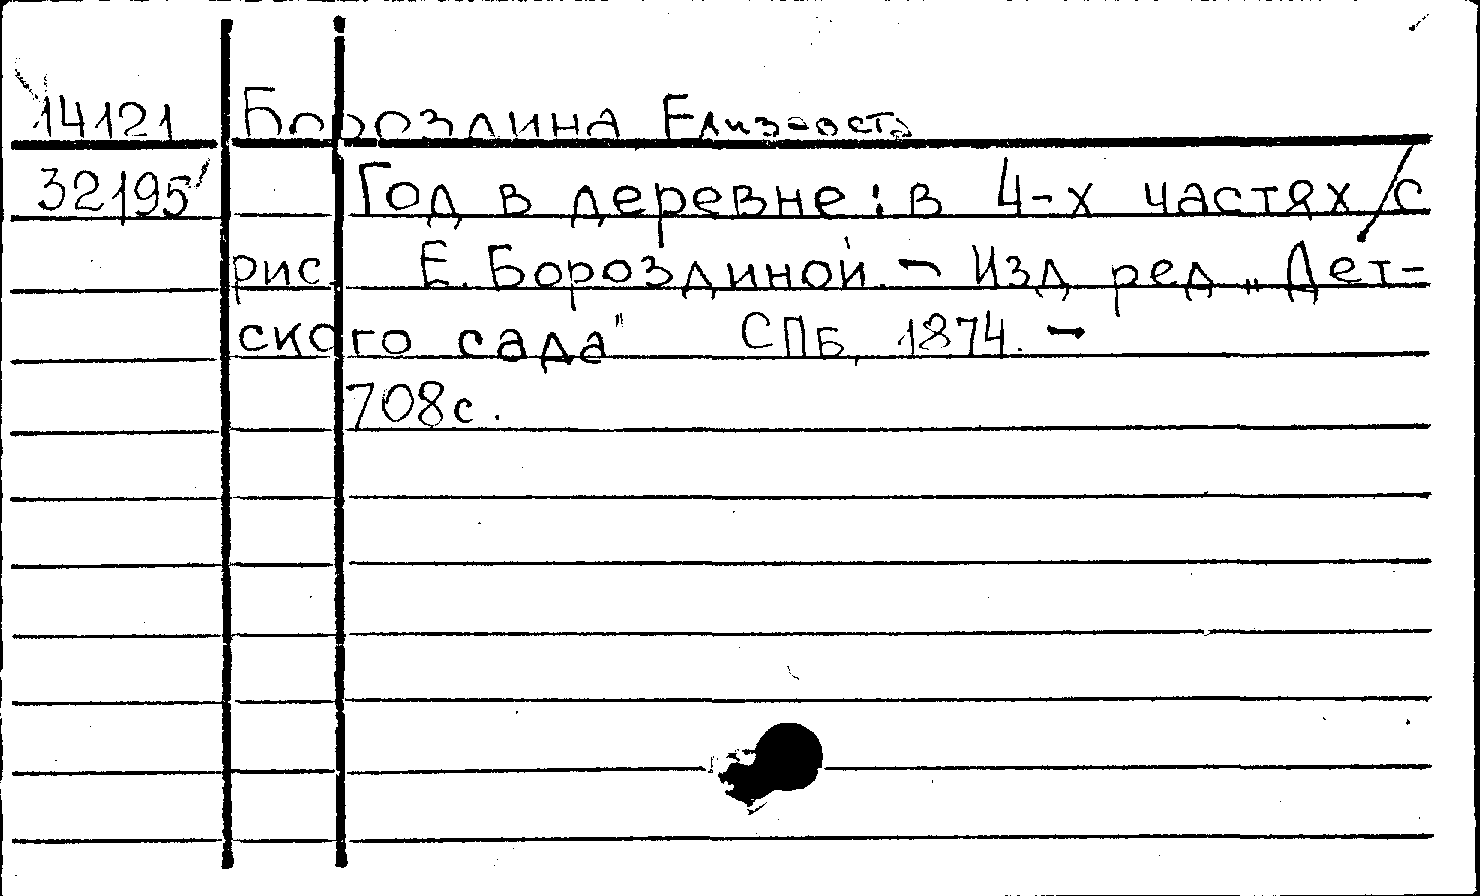 14121 Бороздина
32195 Год в деревне: в 4-х частях / с
рис. Е. Бороздиной. - Изд ред „Дет-
ского сада" СПБ, 1874. -
708с.